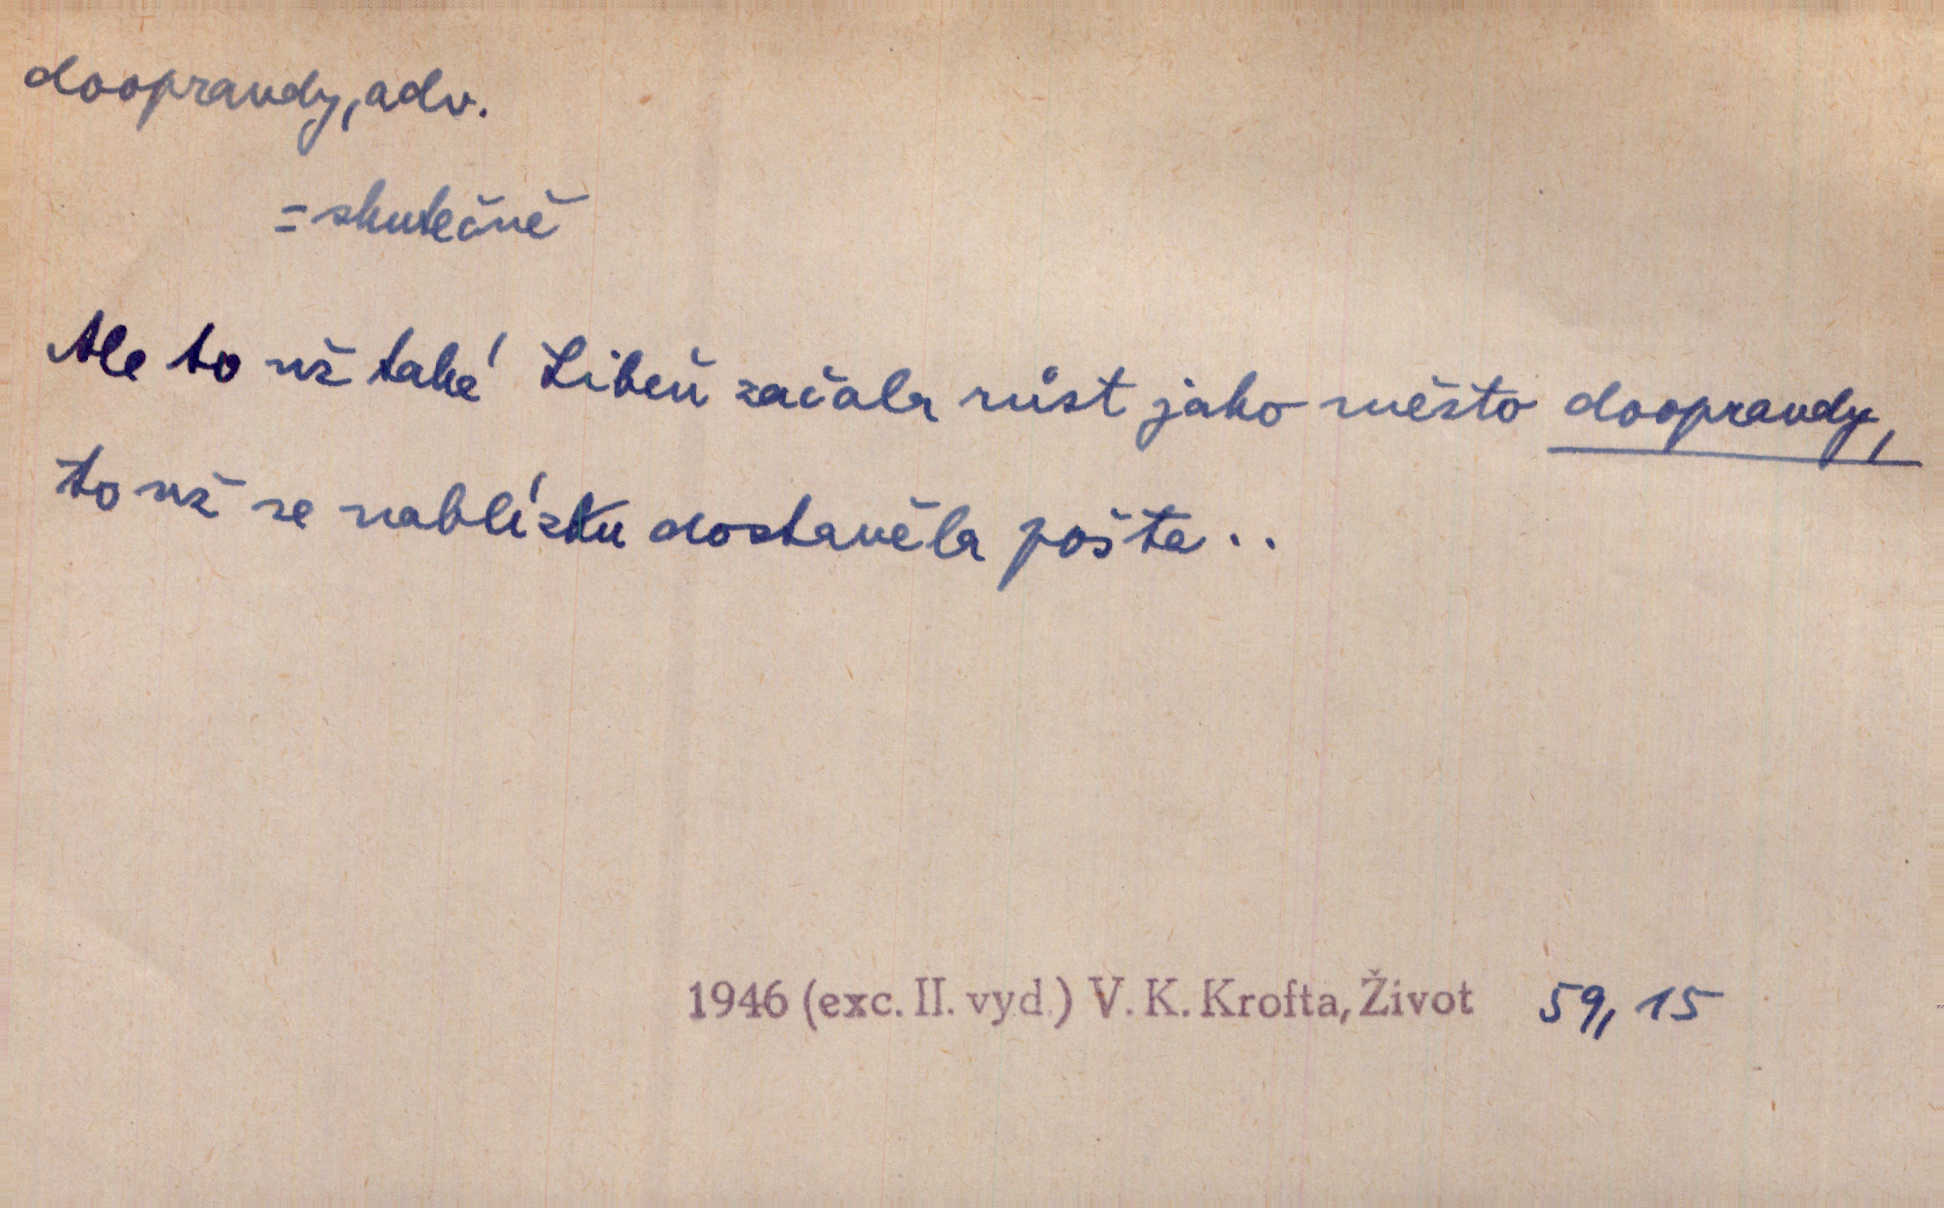 doopravdy, adv.
= skutečně
Ale to už také Libeň začala růst jako město doopravdy,
to už se nablízku dostavěla pošta..
1946 (exc. II. vyd.) V. K. Krofta, Život 59, 15